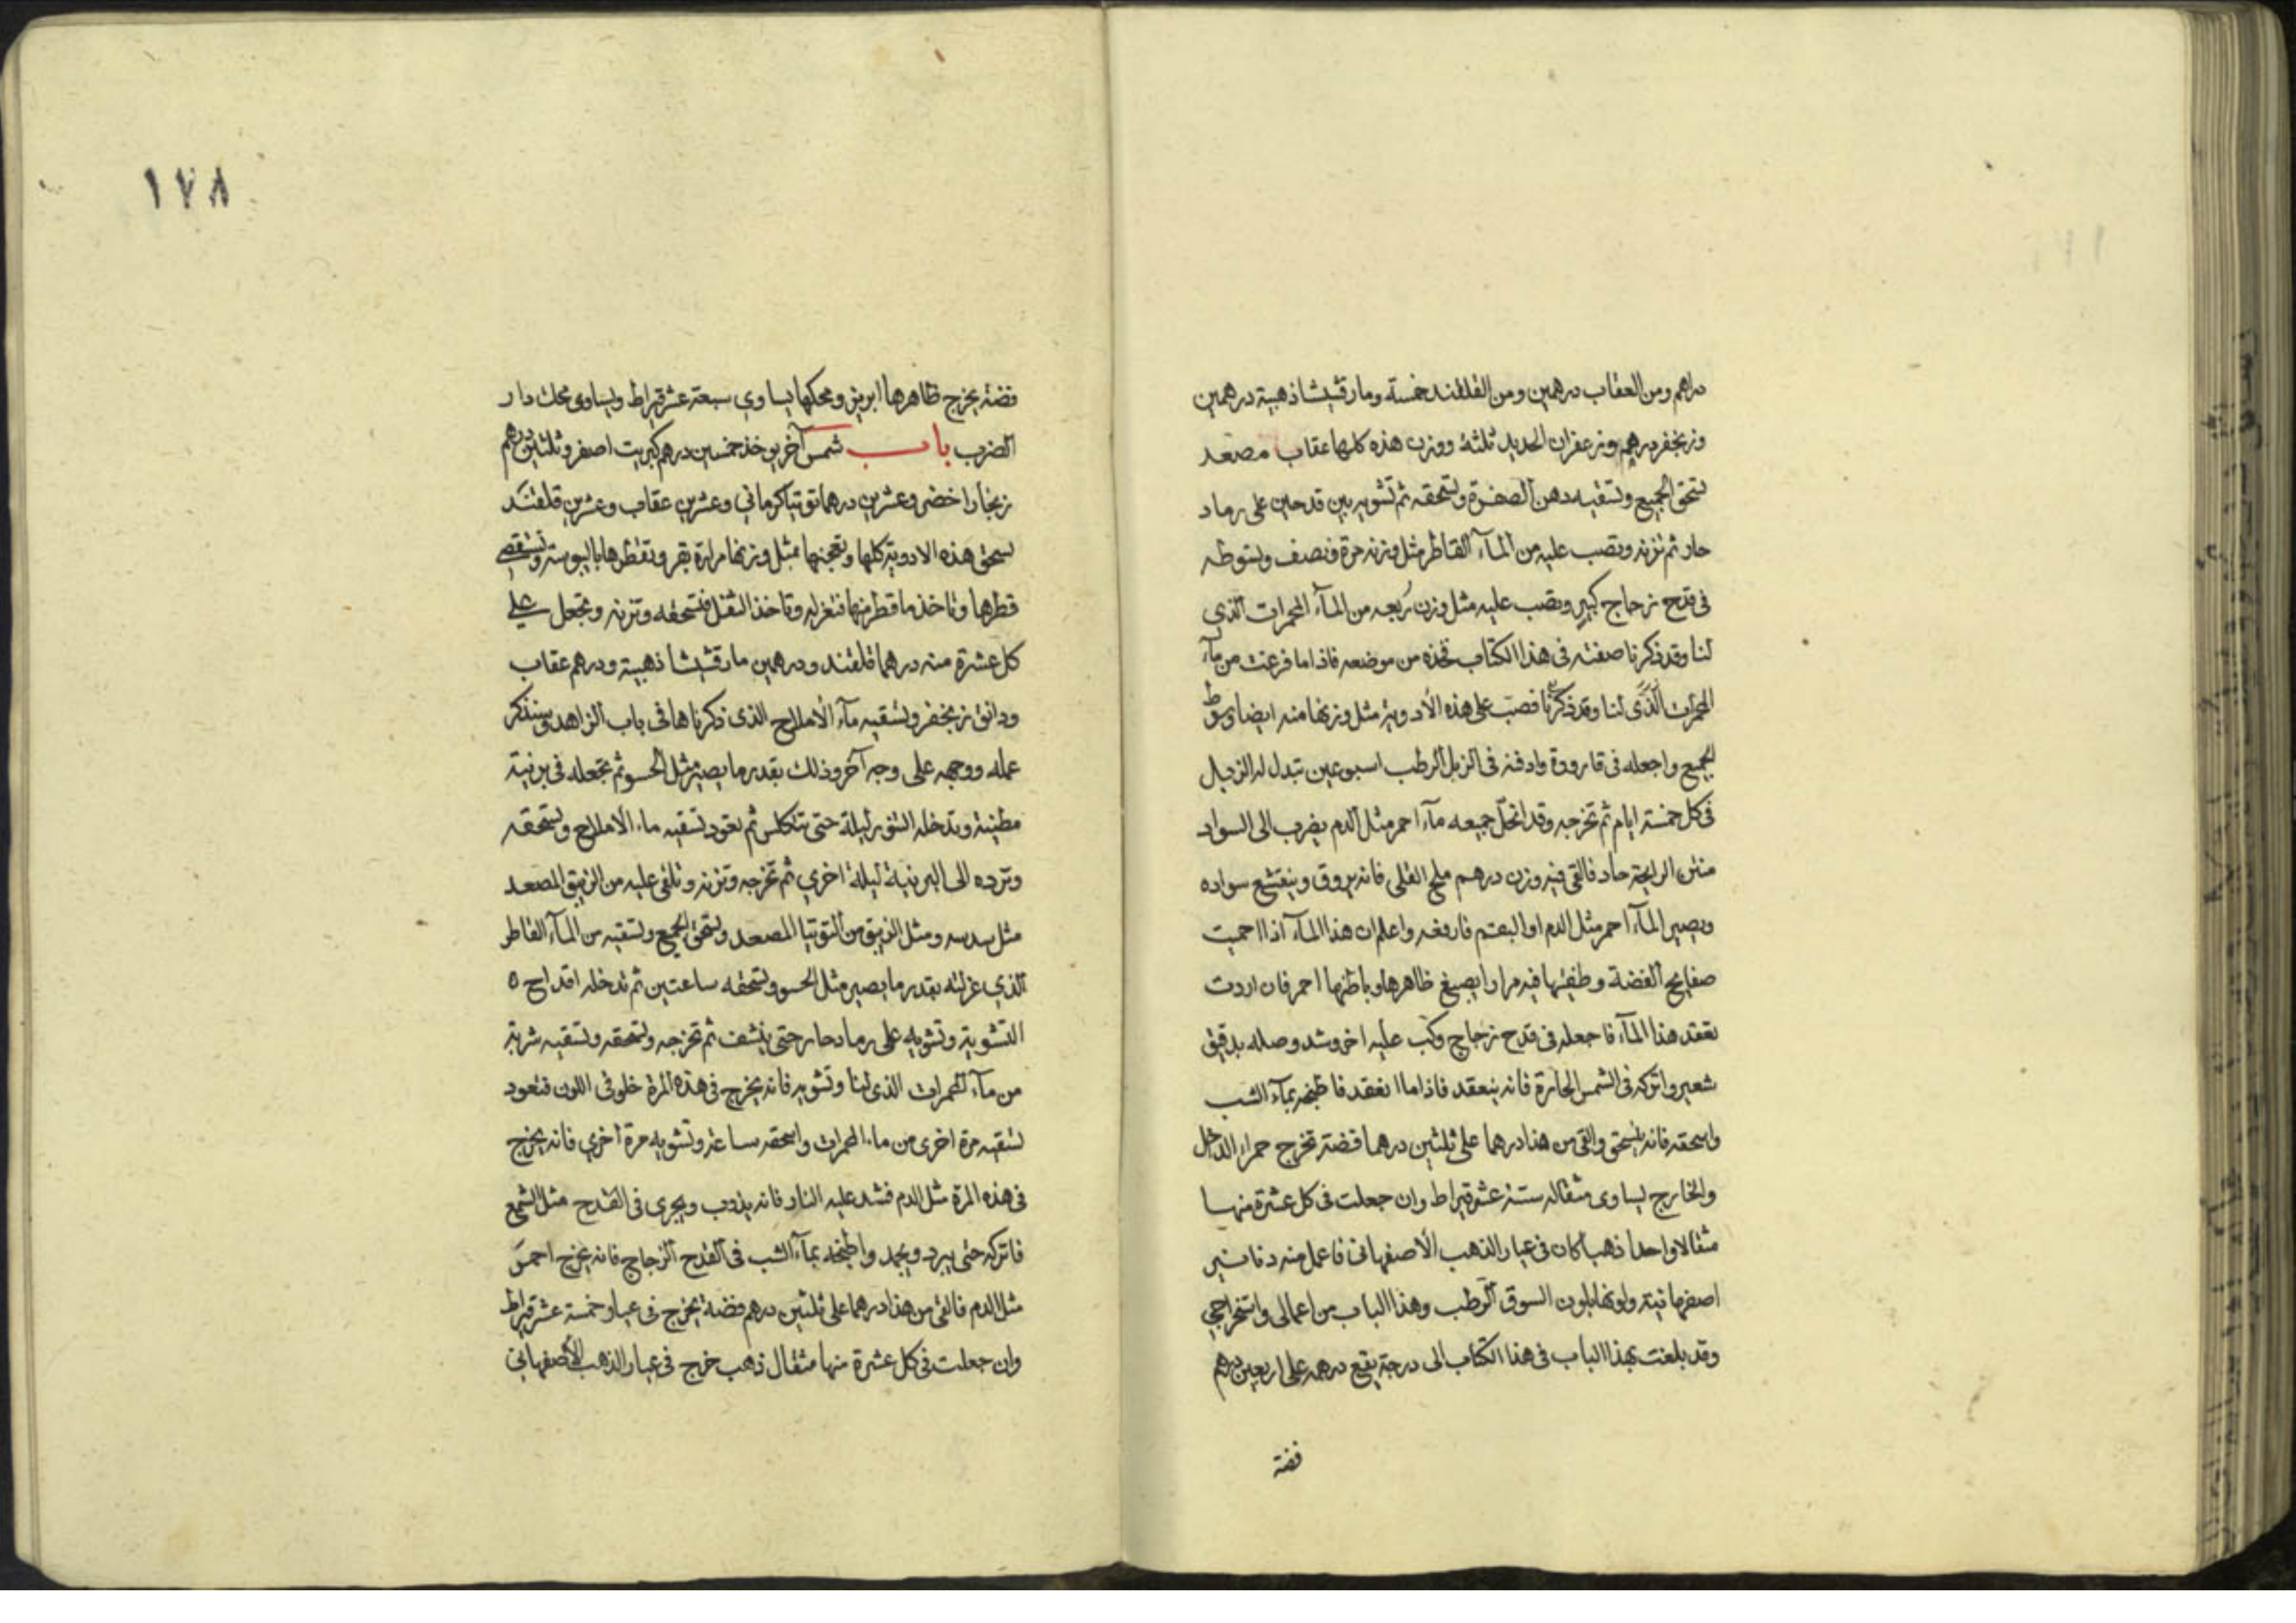 دراهم ومن العقاب درهمين ومن القلقند خمسة ومارقشيشا ذهبية درهمين
وزنجفر درهم وزعفران الحديد ثلثة ووزن هذه كلها عقاب مصعد
تسحق الجميع وتسقيه دهن الصفرة وتسحقه ثم تشويه بين قدحين على رماد
حار ثم تزنه وتصب عليه من المآء القاطر مثل وزنه مرة ونصف وتسوطه
فى قدح زجاج كبير وتصب عليه مثل وزن ربعه من المآء المحمرات الذى
لنا وقد ذكرنا صفته فى هذا الكتاب تجذه من موضعه فاذا ما فرغت من مآء
المحمرات الذى لنا وقد ذكرنا فصب على هذه الأدوية مثل وزنها منه ايضا وسوط
الجميع واجعله فى قارورة وادفنه فى الزبل الرطب اسبوعين تبدل له الزبل
فى كل خمسة ايام ثم تخرجه وقد انحل جميعه مآء احمر مثل الدم يضرب الى السواد
منتن الرايحة حاد فالقى فيه وزن درهم ملح القلى فانه يروق وينقشع سواده
ويصير المآء احمر مثل الدم او البقم فارفعه واعلم ان هذا المآء اذا احميت
صفايح الفضة وطفيتها فيه مرارا يصبغ ظاهرها وباطنها احمر فان اردت
تعقد هذا المآء فاجعله فى قدح زجاج وكب عليه اخر وشد وصله بدقيق
شعير واتركه فى الشمس الحارة فانه ينعقد فاذا ما انعقد فاطبخه بمآء الشب
واسحقه فانه ينسحق والقى من هذا درهما على ثلثين درهما فضة تخرج حمراء الداخل
والخارج يساوى مثقاله ستة عشر قيراط وان جعلت فى كل عشرة منها
مثقالا واحدا ذهبا كان فى عيار الذهب الأصفهانى فاعمل منه دنانير
اصفرمانية ولونها بلون السوق الرطب وهذا الباب من اعمالى واستخراجى
وقد بلغت بهذا الباب فى هذا الكتاب الى درجة يقع درهمه على اربعين درهم
فضة
١٧٨
فضة يخرج ظاهرها ابريز ومحكها يساوى سبعة عشر قيراط ويساوى محك دار
الضرب باب شمس آخر يوخذ خمسين درهم كبريت اصفر وثلثين درهم
زنجارا خضر وعشرين درهما توتيا كرمانى وعشرين عقاب وعشرين قلقند
تسحق هذه الادوية كلها وتعجنها بمثل وزنها مرارة بقر وتقطرها باليبوسة وتستقصى
قطرها وتاخذ ما قطر منها فتعزله وتاخذ الثفل فتسحقه وتزنه وتجعل على
كل عشرة منه درهما قلقند ودرهمين مارقشيشا ذهبية ودرهم عقاب
ودانق زنجفر وتسقيه مآء الأملاح الذى ذكرناها فى باب الزاهد وسنذكر
عمله ووجهه على وجه آخر وذلك بقدر ما يصير مثل الحسو ثم تجعله فى برنية
مطينة وتدخله التنور ليلة حتى تتكلس ثم تعود تسقيه ماء الأملاح وتسحقه
وترده الى البرنية ليلة اخرى ثم تخرجه وتزنه وتلقى عليه من الزيبق المصعد
مثل سدسه ومثل الزيبق من التوتيا المصعد وتسحق الجميع وتسقيه من المآء القاطر
الذى عزلته بقدر ما يصير مثل الحسو وتسحقه ساعتين ثم تدخله اقداح ٥
التشوية وتشويه على رماد حار حتى ينشف ثم تخرجه وتسحقه وتسقيه شربة
من مآء المحمرات الذى لنا وتشويه فانه يخرج فى هذه المرة خلوقى اللون فتعود
تسقيه مرة اخرى من ماء المحمرات واسحقه ساعة وتشويه مرة اخرى فانه يخرج
فى هذه المرة مثل الدم فشد عليه النار فانه يذوب ويجرى فى القدح مثل الشمع
فاتركه حتى يبرد ويجمد واطبخه بمآء الشب فى القدح الزجاج فانه يخرج احمر
مثل الدم فالقى من هذا درهما على ثلثين درهم فضة يخرج فى عيار خمسة عشر قيراط
وان جعلت فى كل عشرة منها مثقال ذهب خرج فى عيار الذهب الأصفهانى